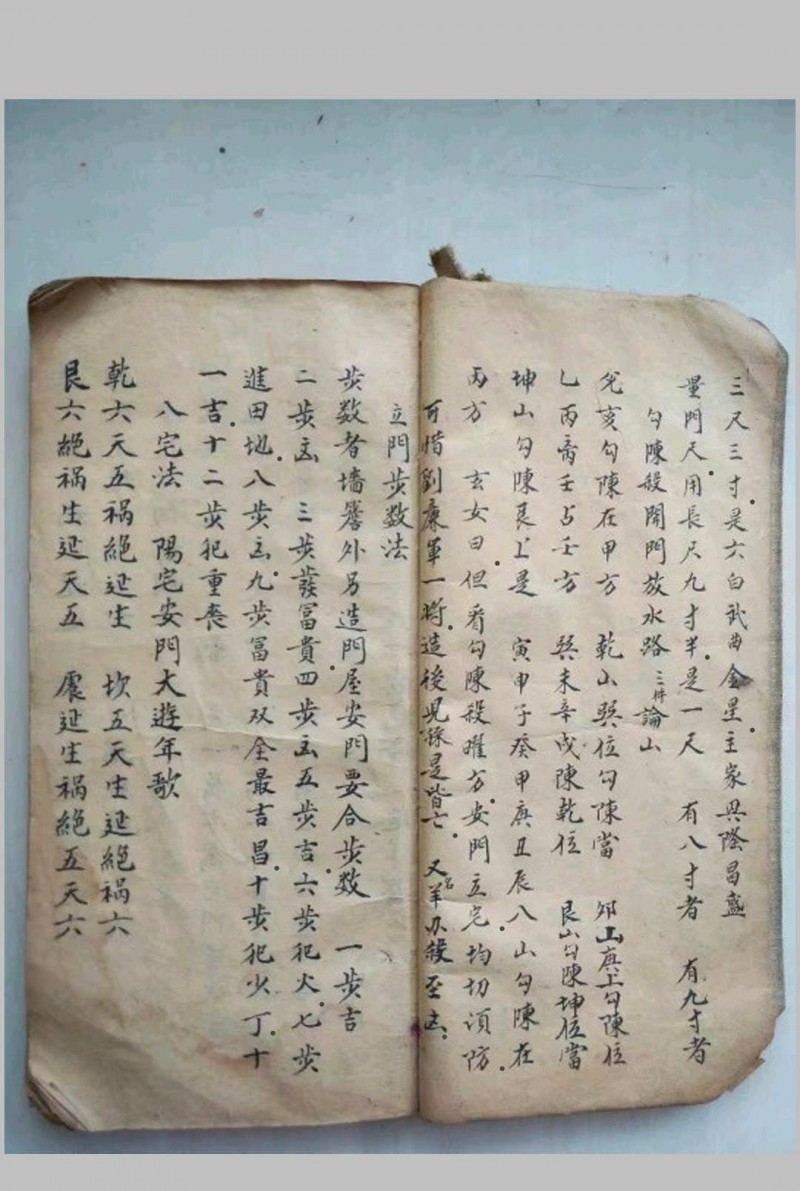 三尺三寸是六白武曲金星主家興隆昌盛
量門尺用長尺九寸半是一尺 有八寸者 有九寸者
勾陳殺開門放水路三件論山
兌亥勾陳在甲方 乾山巽位勾陳當 卯山庚上勾陳位
乙丙喬壬占壬方 巽未辛戌陳乾位 艮山勾陳坤位當
坤山勾陳艮上是 寅甲子癸甲庚丑辰八山勾陳在
丙方 玄女曰但看勾陳殺曜方安門立宅均切須防
可惜劉廉軍一將造後見孫是皆亡 又名羊刃殺至凶
立門步数法
步数者墻簷外另造門屋安門要合步数 一步吉
二步凶 三步發冨貴四步凶五步吉六步犯火七步
進田地八步凶九步冨貴双全最吉昌十步犯少丁十
一吉十二步犯重喪
八宅法 陽宅安門大遊年歌
乾六天五禍絕延生 坎五天生延絕禍六
艮六絕禍生延天五 震延生禍絕五天六